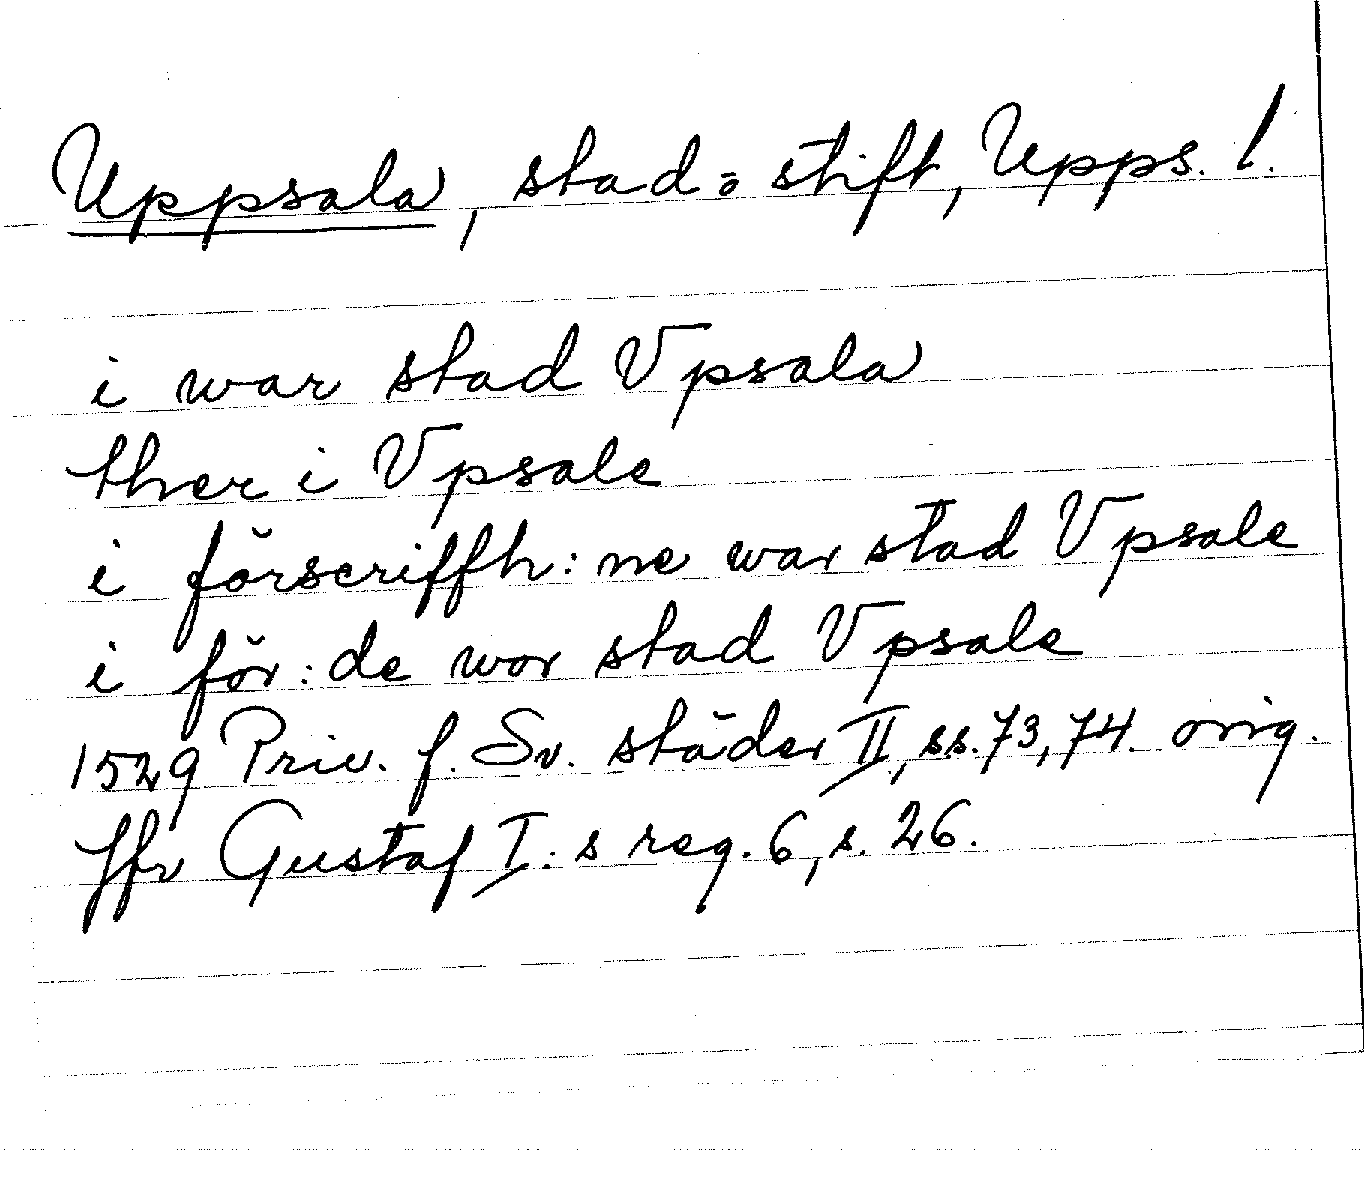 Uppsala, stad o stift, Upps. l.
i war stad Vpsala
ther i Vpsale
i förscriffh:ne war stad Vpsale
i för:de wor stad Vpsale
1529 Priv. f. Sv. städer II, ss. 73, 74. orig.
Jfr Gustaf I:s reg. 6, s. 26.